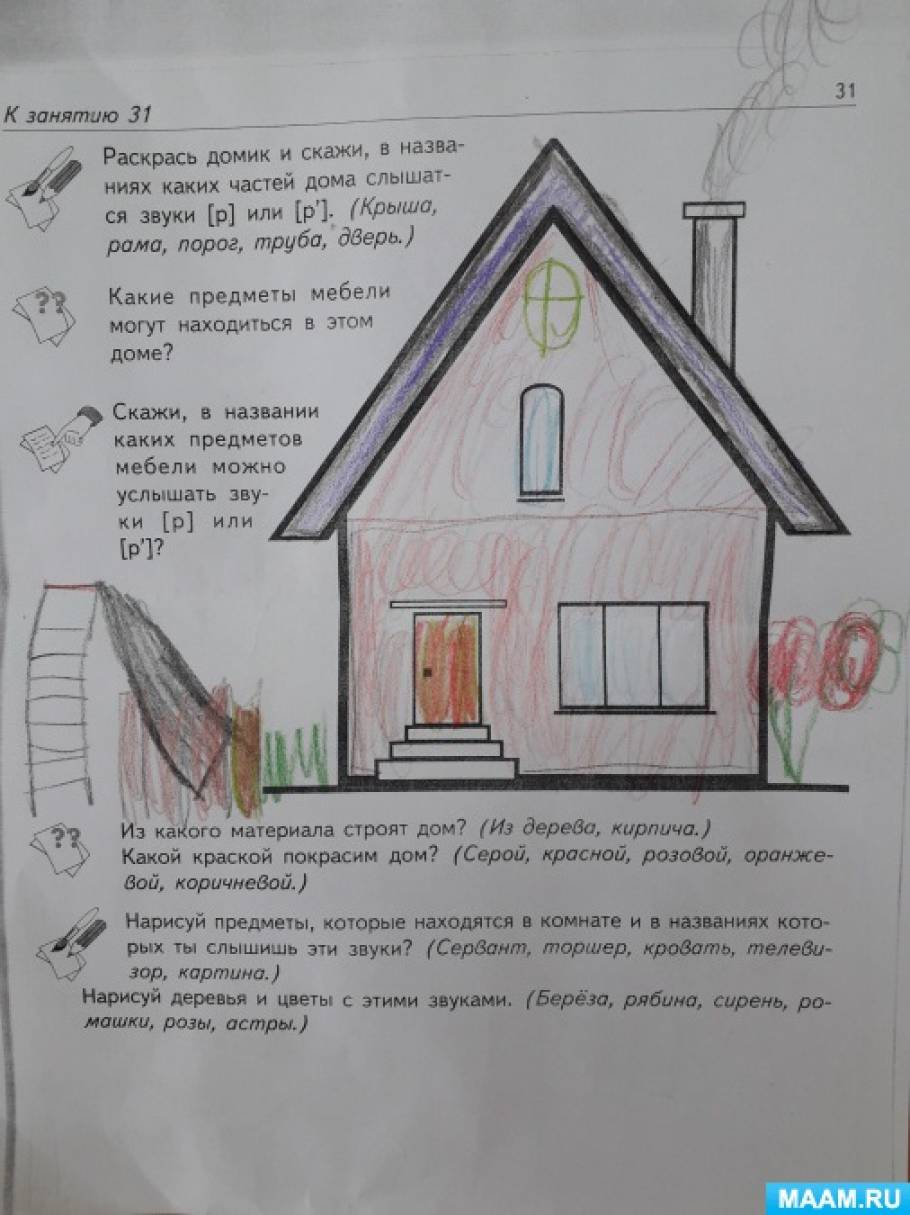 К занятию 31
31
Раскрась домик и скажи, в назва-
ниях каких частей дома слышат-
ся звуки [р] или [р']. (Крыша,
рама, порог, труба, дверь.)
??
Какие предметы мебели
могут находиться в этом
доме?
Скажи, в названии
каких предметов
мебели можно
услышать зву-
ки [р] или
[р']?
??
Из какого материала строят дом? (Из дерева, кирпича.)
Какой краской покрасим дом? (Серой, красной, розовой, оранже-
вой, коричневой.)
Нарисуй предметы, которые находятся в комнате и в названиях кото-
рых ты слышишь эти звуки? (Сервант, торшер, кровать, телеви-
зор, картина.)
Нарисуй деревья и цветы с этими звуками. (Берёза, рябина, сирень, ро-
машки, розы, астры.)
MAAM.RU